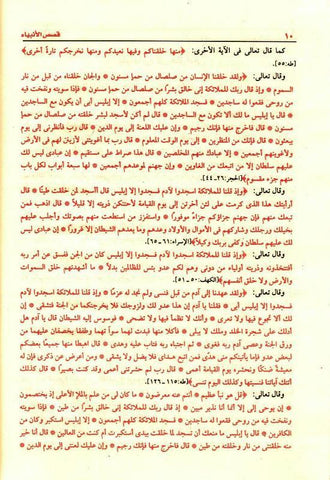 ١٠ قصص الأنبياء
كما قال تعالى فى الآية الأخرى: ﴿منها خلقناكم وفيها نعيدكم ومنها نخرجكم تارة أخرى﴾
[طه: ٥٥].
وقال تعالى: ﴿ولقد خلقنا الإنسان من صلصال من حمإ مسنون * والجان خلقناه من قبل من نار
السموم * وإذ قال ربك للملائكة إنى خالق بشرًا من صلصال من حمإ مسنون * فإذا سويته ونفخت فيه
من روحى فقعوا له ساجدين * فسجد الملائكة كلهم أجمعون * إلا إبليس أبى أن يكون مع الساجدين
* قال يا إبليس ما لك ألا تكون مع الساجدين * قال لم أكن لأسجد لبشر خلقته من صلصال من حمإ
مسنون * قال فاخرج منها فإنك رجيم * وإن عليك اللعنة إلى يوم الدين * قال رب فأنظرنى إلى يوم
يبعثون * قال فإنك من المنظرين * إلى يوم الوقت المعلوم * قال رب بما أغويتنى لأزينن لهم فى الأرض
ولأغوينهم أجمعين * إلا عبادك منهم المخلصين * قال هذا صراط على مستقيم * إن عبادى ليس لك
عليهم سلطان إلا من اتبعك من الغاوين * وإن جهنم لموعدهم أجمعين * لها سبعة أبواب لكل باب
منهم جزء مقسوم﴾ [الحجر: ٢٦-٤٤].
وقال تعالى: ﴿وإذ قلنا للملائكة اسجدوا لآدم فسجدوا إلا إبليس قال أأسجد لمن خلقت طينًا * قال
أرأيتك هذا الذى كرمت على لئن أخرتن إلى يوم القيامة لأحتنكن ذريته إلا قليلاً * قال اذهب فمن
تبعك منهم فإن جهنم جزاؤكم جزاءً موفورًا * واستفزز من استطعت منهم بصوتك وأجلب عليهم
بخيلك ورجلك وشاركهم فى الأموال والأولاد وعدهم وما يعدهم الشيطان إلا غرورًا * إن عبادى ليس
لك عليهم سلطان وكفى بربك وكيلاً﴾ [الإسراء: ٦١-٦٥].
وقال تعالى: ﴿وإذ قلنا للملائكة اسجدوا لآدم فسجدوا إلا إبليس كان من الجن ففسق عن أمر ربه
أفتتخذونه وذريته أولياء من دونى وهم لكم عدو بئس للظالمين بدلاً * ما أشهدتهم خلق السموات
والأرض ولا خلق أنفسهم﴾ [الكهف: ٥٠-٥١].
وقال تعالى: ﴿ولقد عهدنا إلى آدم من قبل فنسى ولم نجد له عزمًا * وإذ قلنا للملائكة اسجدوا لآدم
فسجدوا إلا إبليس أبى * فقلنا يا آدم إن هذا عدو لك ولزوجك فلا يخرجنكما من الجنة فتشقى * إن
لك ألا تجوع فيها ولا تعرى * وأنك لا تظمأ فيها ولا تضحى * فوسوس إليه الشيطان قال يا آدم هل
أدلك على شجرة الخلد وملك لا يبلى * فأكلا منها فبدت لهما سوءآتهما وطفقا يخصفان عليهما من
ورق الجنة وعصى آدم ربه فغوى * ثم اجتباه ربه فتاب عليه وهدى * قال اهبطا منها جميعًا بعضكم
لبعض عدو فإما يأتينكم منى هدى فمن اتبع هداى فلا يضل ولا يشقى * ومن أعرض عن ذكرى فإن له
معيشة ضنكًا ونحشره يوم القيامة أعمى * قال رب لم حشرتنى أعمى وقد كنت بصيرًا * قال كذلك
أتتك آياتنا فنسيتها وكذلك اليوم تنسى﴾ [طه: ١١٥-١٢٦].
وقال تعالى: ﴿قل هو نبأ عظيم * أنتم عنه معرضون * ما كان لى من علم بالملإ الأعلى إذ يختصمون
* إن يوحى إلى إلا أنما أنا نذير مبين * إذ قال ربك للملائكة إنى خالق بشرًا من طين * فإذا سويته
ونفخت فيه من روحى فقعوا له ساجدين * فسجد الملائكة كلهم أجمعون * إلا إبليس استكبر وكان من
الكافرين * قال يا إبليس ما منعك أن تسجد لما خلقت بيدى أستكبرت أم كنت من العالين * قال أنا خير
منه خلقتنى من نار وخلقته من طين * قال فاخرج منها فإنك رجيم * وإن عليك لعنتى إلى يوم الدين *